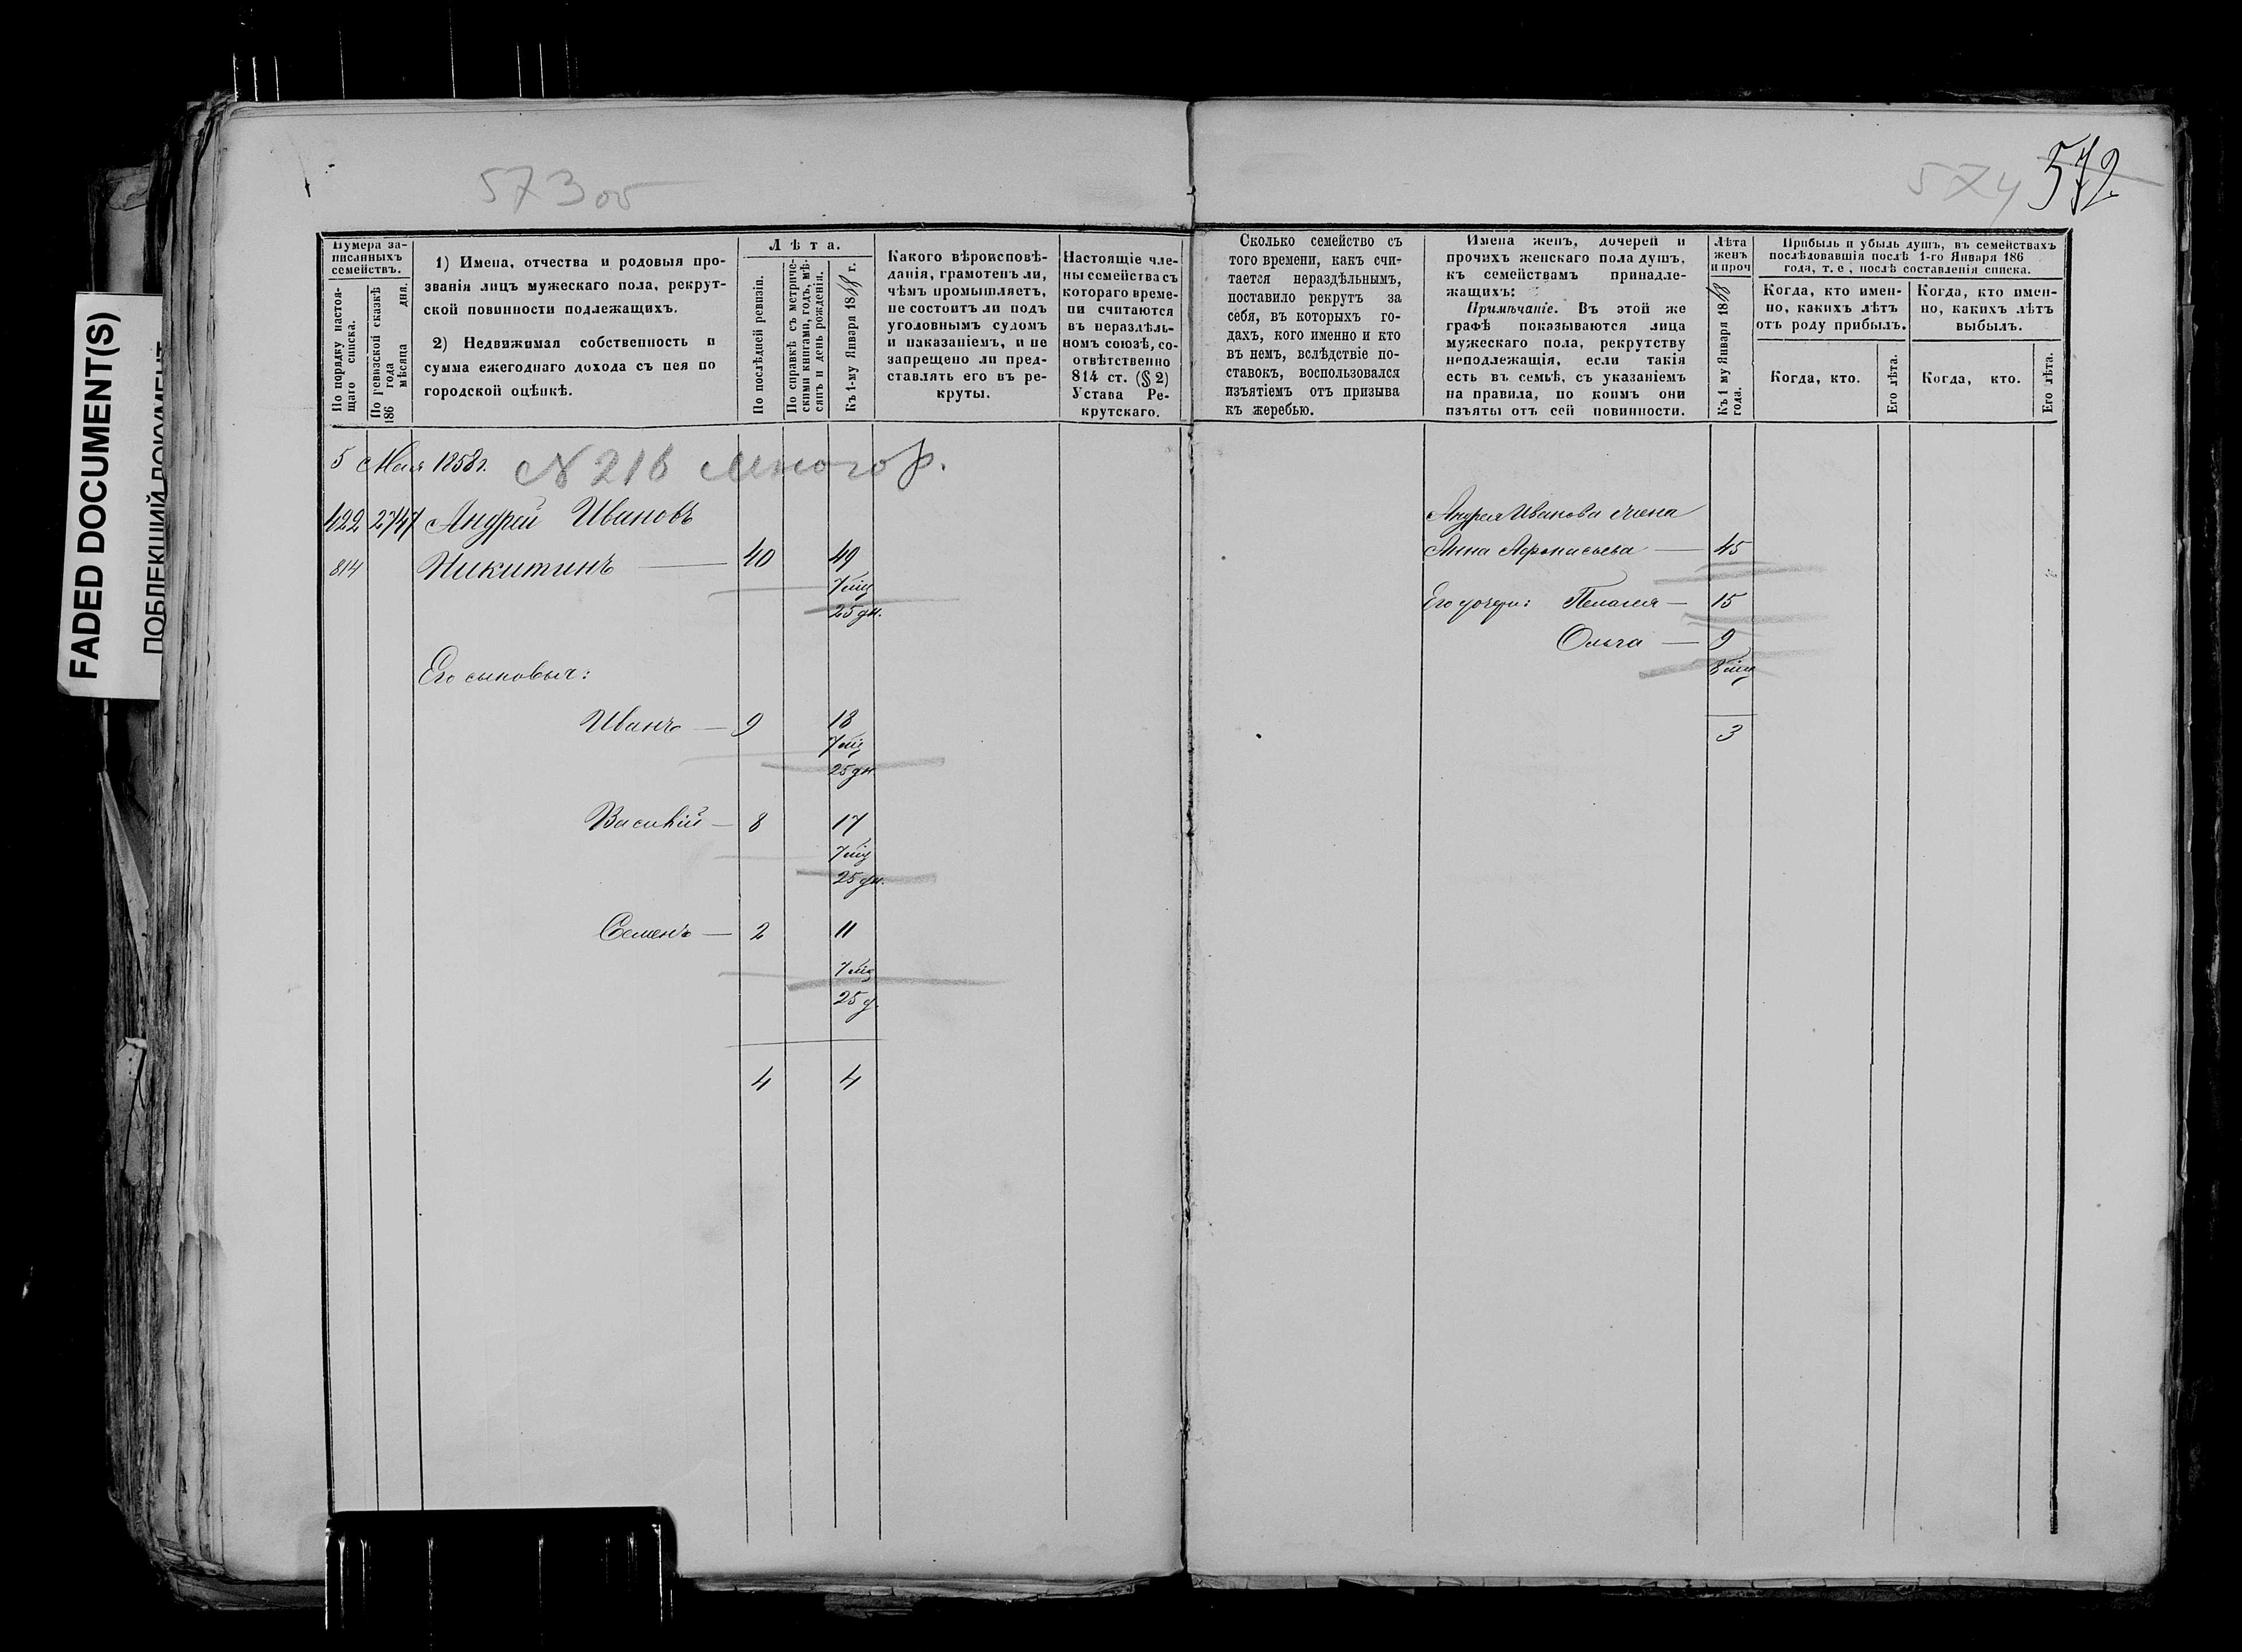 573 об
574
572
FADED DOCUMENT(S)
ПОБЛЕКШИЙ ДОКУМЕНТ
Нумера за-
писанныхъ
семействъ.
По порядку настоя-
щаго списка.
По ревизской сказкѣ
186 года
мѣсяца дня.
1) Имена, отчества и родовыя про-
званія лицъ мужескаго пола, рекрут-
ской повинности подлежащихъ.
2) Недвижимая собственность и
сумма ежегоднаго дохода съ нея по
городской оцѣнкѣ.
Лѣта.
По послѣдней ревизіи.
По справкѣ съ метриче-
скими книгами, годъ, мѣ-
сяцъ и день рожденія.
Къ 1-му Января 1868 г.
Какого вѣроисповѣ-
данія, грамотенъ ли,
чѣмъ промышляетъ,
не состоитъ ли подъ
уголовнымъ судомъ
и наказаніемъ, и не
запрещено ли пред-
ставлять его въ ре-
круты.
Настоящіе чле-
ны семейства съ
котораго време-
ни считаются
въ нераздѣль-
номъ союзѣ, со-
отвѣтственно
814 ст. (§ 2)
Устава Ре-
крутскаго.
Сколько семейство съ
того времени, какъ счи-
тается нераздѣльнымъ,
поставило рекрутъ за
себя, въ которыхъ го-
дахъ, кого именно и кто
въ немъ, вслѣдствіе по-
ставокъ, воспользовался
изъятіемъ отъ призыва
къ жеребью.
Имена женъ, дочерей и
прочихъ женскаго пола душъ,
къ семействамъ принадле-
жащихъ:
Примѣчаніе. Въ этой же
графѣ показываются лица
мужескаго пола, рекрутству
неподлежащія, если такія
есть въ семьѣ, съ указаніемъ
на правила, по коимъ они
изъяты отъ сей повинности.
Лѣта
женъ
и проч
Къ 1 му Января 1868
года.
Прибыль и убыль душъ, въ семействахъ
послѣдовавшія послѣ 1-го Января 186
года, т. е, послѣ составленія списка.
Когда, кто имен-
но, какихъ лѣтъ
отъ роду прибылъ.
Когда, кто имен-
но, какихъ лѣтъ
выбылъ.
Когда, кто.
Его лѣта.
Когда, кто.
Его лѣта.
5 Мая 1858 г.
422 2747 Андрей Ивановъ
814 Никитинъ — 40 49
7 мц
25 дн.
Его сыновья:
Иванъ — 9 18
7 мц
25 дн.
Василій — 8 17
7 мц
25 дн.
Семенъ — 2 11
7 мц
25 д.
4 4
Андрея Иванова жена
Анна Афонасьева — 45
Его дочери: Пелагея — 15
Ольга — 9
8 мц
3